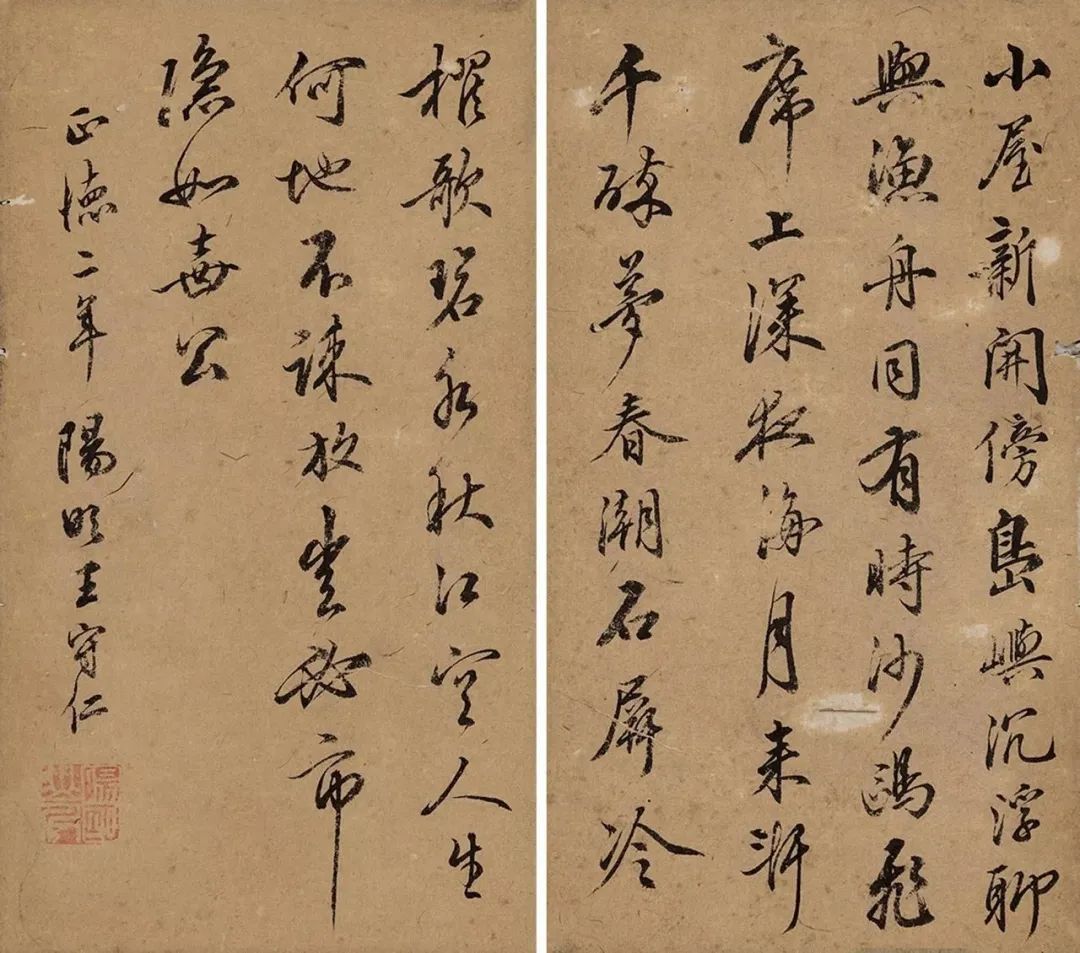 小屋新開傍島嶼沉浮聊
與漁舟同有時沙鷗飛
席上深夜海月來軒
中醉夢春潮石屏冷
櫂歌碧水秋江空人生
何地不疎放豈必市
隱如壺公
正德二年 陽明王守仁
陽明山人